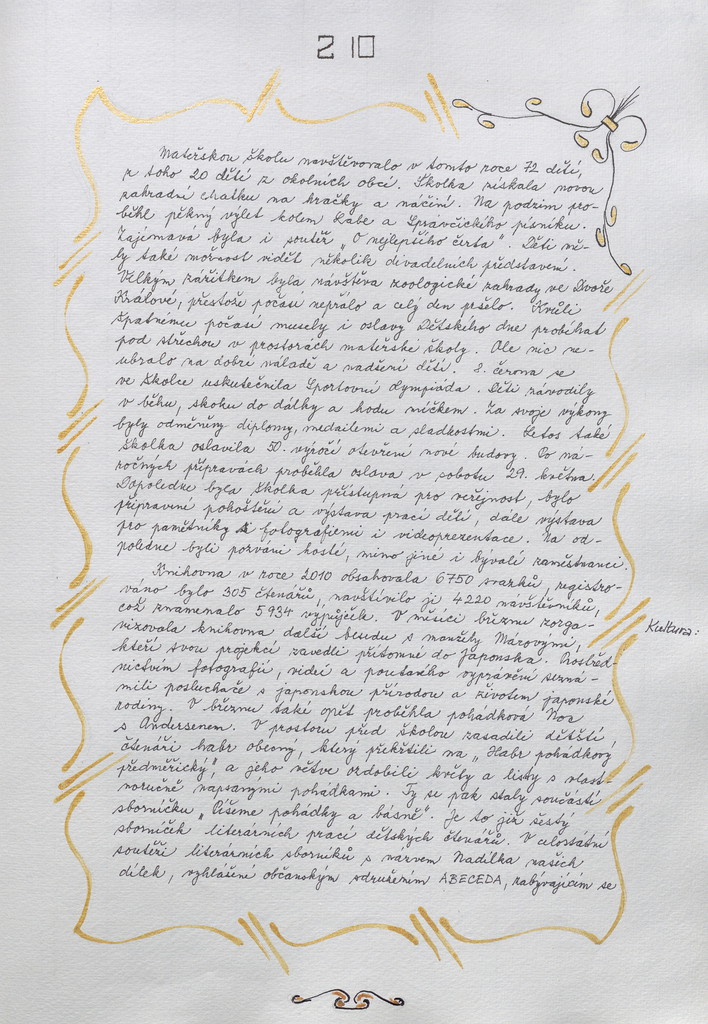 210
Mateřskou školu navštěvovalo v tomto roce 72 dětí,
z toho 20 dětí z okolních obcí. Školka získala novou
zahradní chatku na hračky a náčiní. Na podzim pro-
běhl pěkný výlet kolem Labe a Správčického písníku.
Zajímavá byla i soutěž „O nejlepšího čerta". Děti mě-
ly také možnost vidět několik divadelních představení.
Velkým zážitkem byla návštěva zoologické zahrady ve Dvoře
Králové, přestože počasí nepřálo a celý den pršelo. Kvůli
špatnému počasí musely i oslavy Dětského dne probíhat
pod střechou v prostorách mateřské školy. Ale nic ne-
ubralo na dobré náladě a nadšení dětí. 8. června se
ve školce uskutečnila Sportovní olympiáda. Děti závodily
v běhu, skoku do dálky a hodu míčkem. Za svoje výkony
byly odměněny diplomy, medailemi a sladkostmi. Letos také
školka oslavila 50. výročí otevření nové budovy. Po ná-
ročných přípravách proběhla oslava v sobotu 29. května.
Dopoledne byla školka přístupná pro veřejnost, bylo
připraveno pohoštění a výstava prací dětí, dále výstava
pro pamětníky s fotografiemi i videoprezentace. Na od-
poledne byli pozváni hosté, mimo jiné i bývalí zaměstnanci.
Knihovna v roce 2010 obsahovala 6750 svazků, registro-
váno bylo 305 čtenářů, navštívilo ji 4220 návštěvníků,
což znamenalo 5934 výpůjček. V měsíci březnu zorga-
Kultura:
nizovala knihovna další besedu s manžely Márovými,
kteří svou projekcí zavedli přítomné do Japonska. Prostřed-
nictvím fotografií, videí a poutavého vyprávění sezná-
mili posluchače s japonskou přírodou a životem japonské
rodiny. V březnu také opět proběhla pohádková Noc
s Andersenem. V prostoru před školou zasadili dětští
čtenáři habr obecný, který překřtili na „Habr pohádkový
předměřický", a jeho větve ozdobili květy a listy s vlast-
noručně napsanými pohádkami. Ty se pak staly součástí
sborníčku „Píšeme pohádky a básně". Je to již šestý
sborníček literárních prací dětských čtenářů. V celostátní
soutěži literárních sborníků s názvem Nadílka našich
dílek, vyhlášení občanským sdružením ABECEDA, zabývajícím se